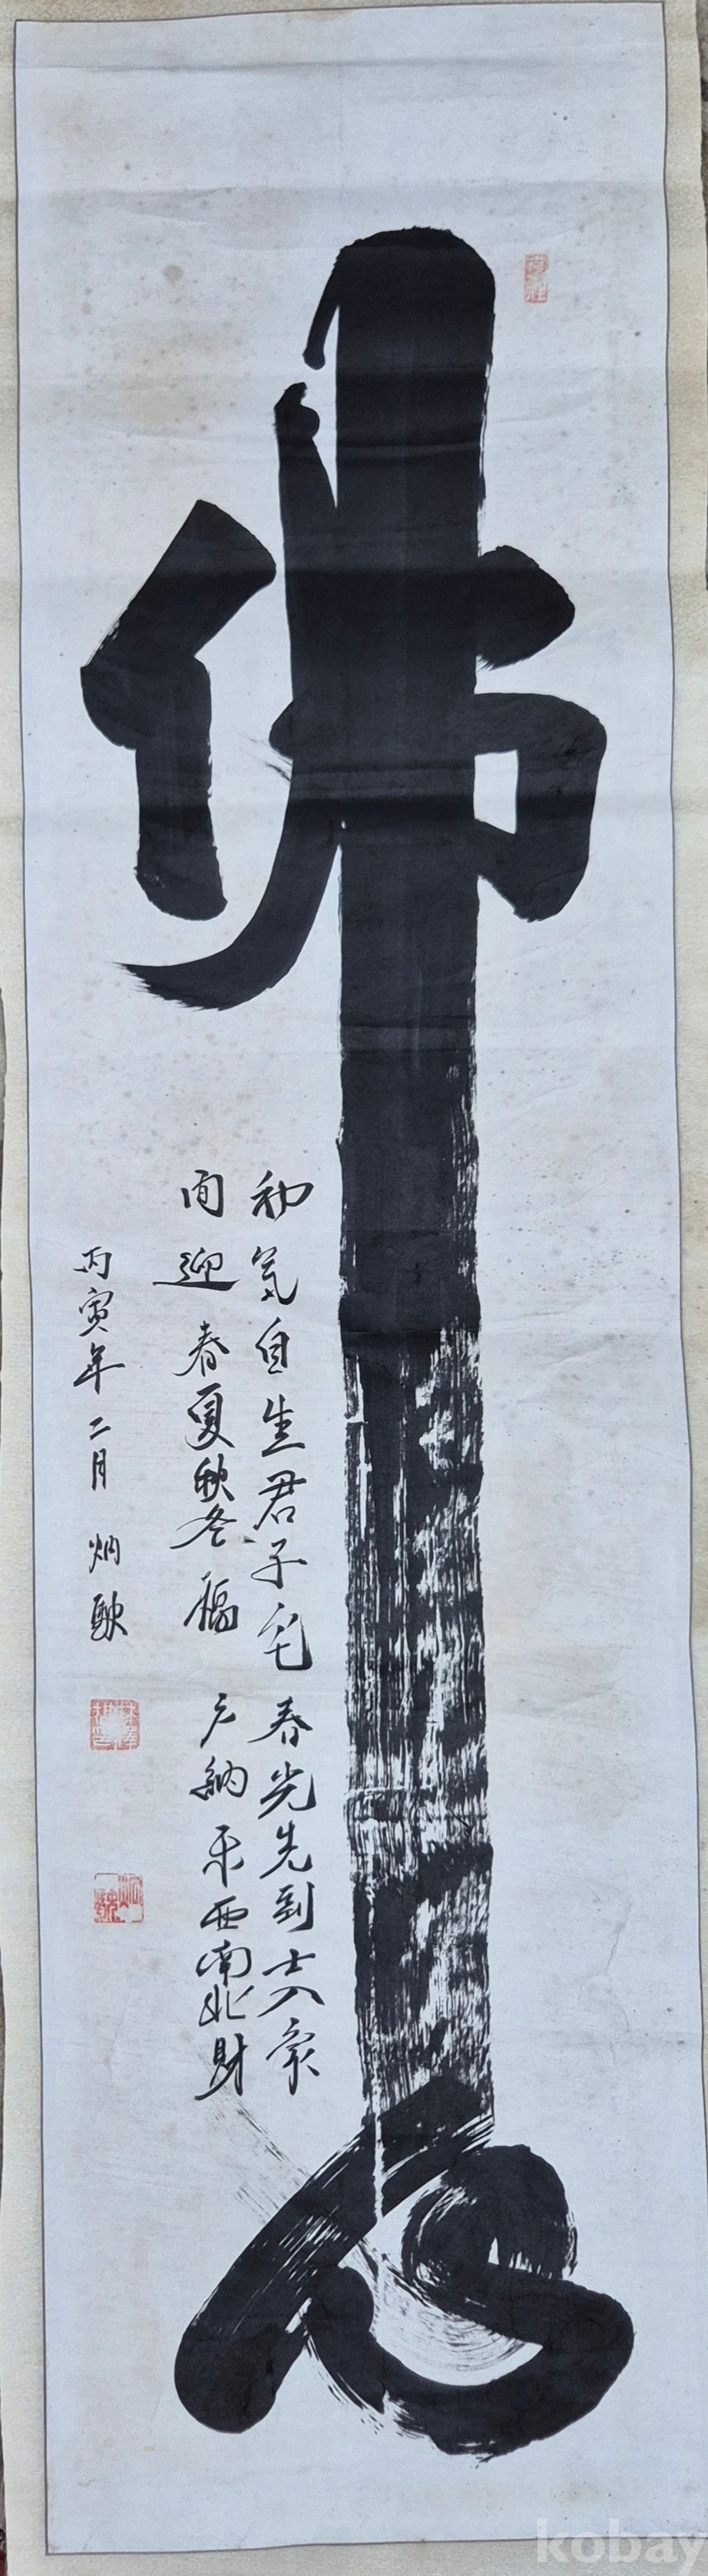 佛心
和氣自生君子宅 春光先到吉人家
門迎春夏秋冬福 戶納東西南北財
丙寅年二月 炳
kobay